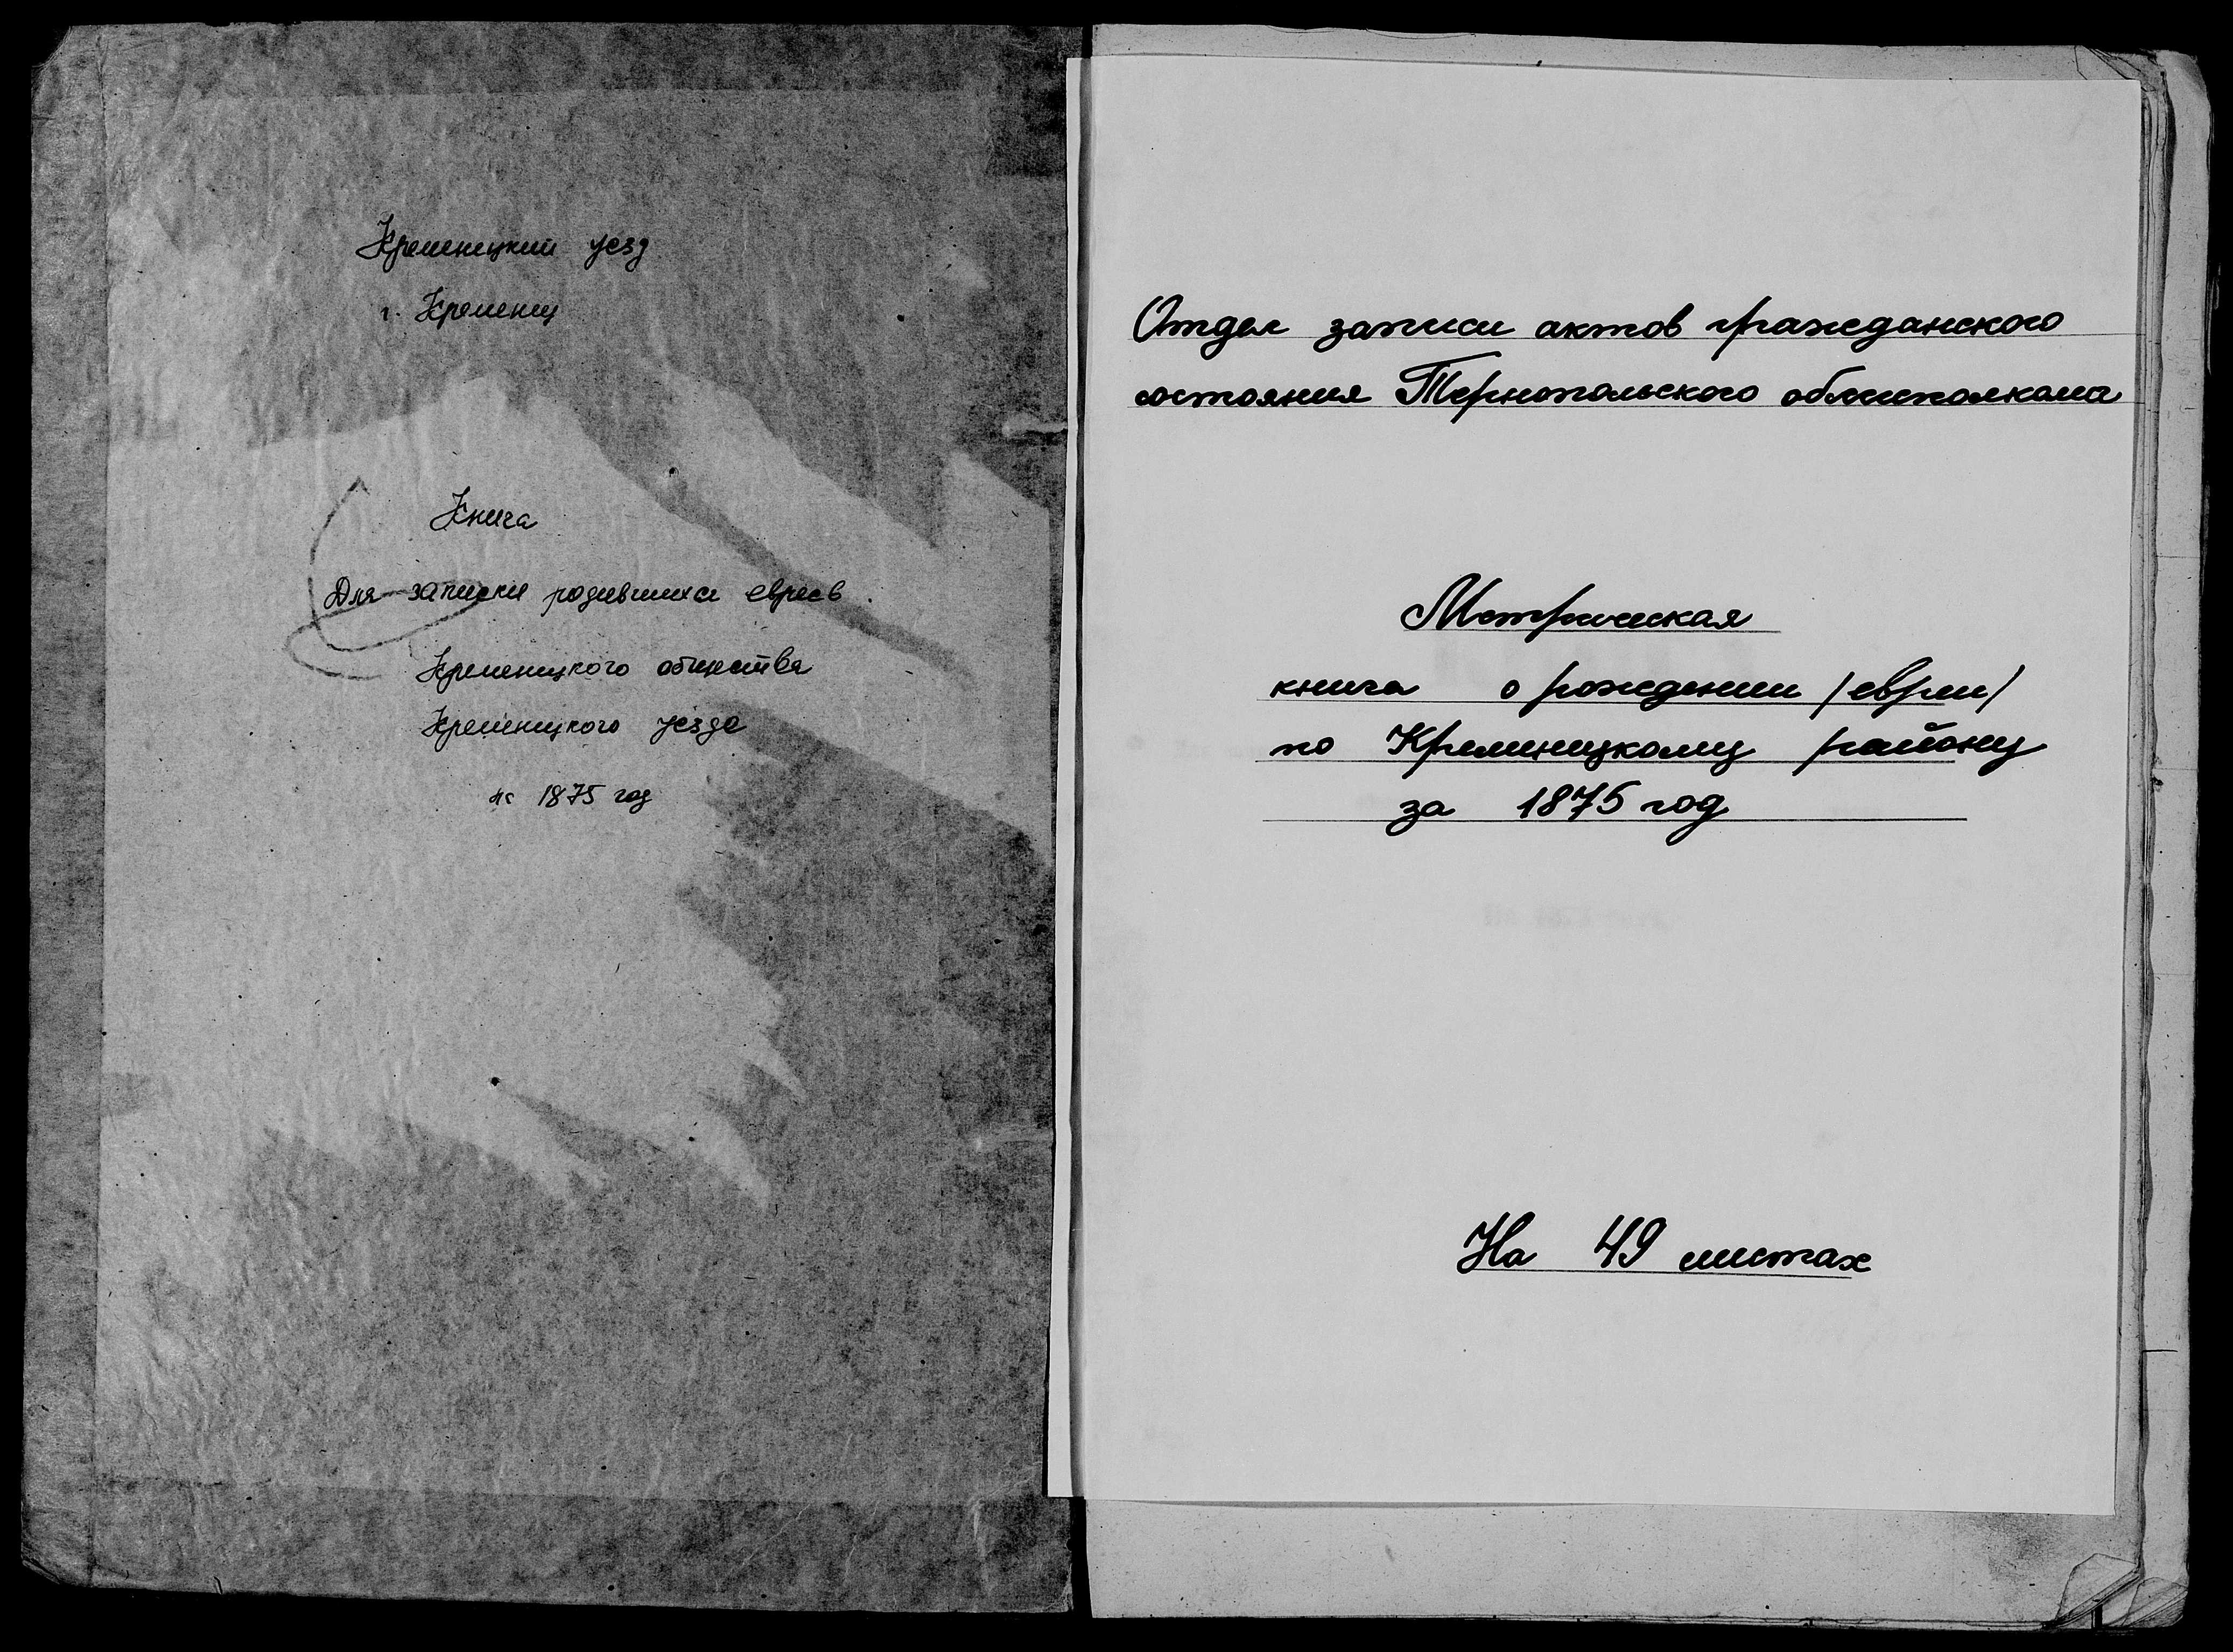 Кременецкий уезд
г. Кременец
Книга
Для записки родившихся евреев
Кременецкого общества
Кременецкого уезда
на 1875 год
Отдел записи актов гражданского
состояния Тернопольского облисполкома
Метрическая
книга о рождении /евреи/
по Кременецкому району
за 1875 год
На 49 листах